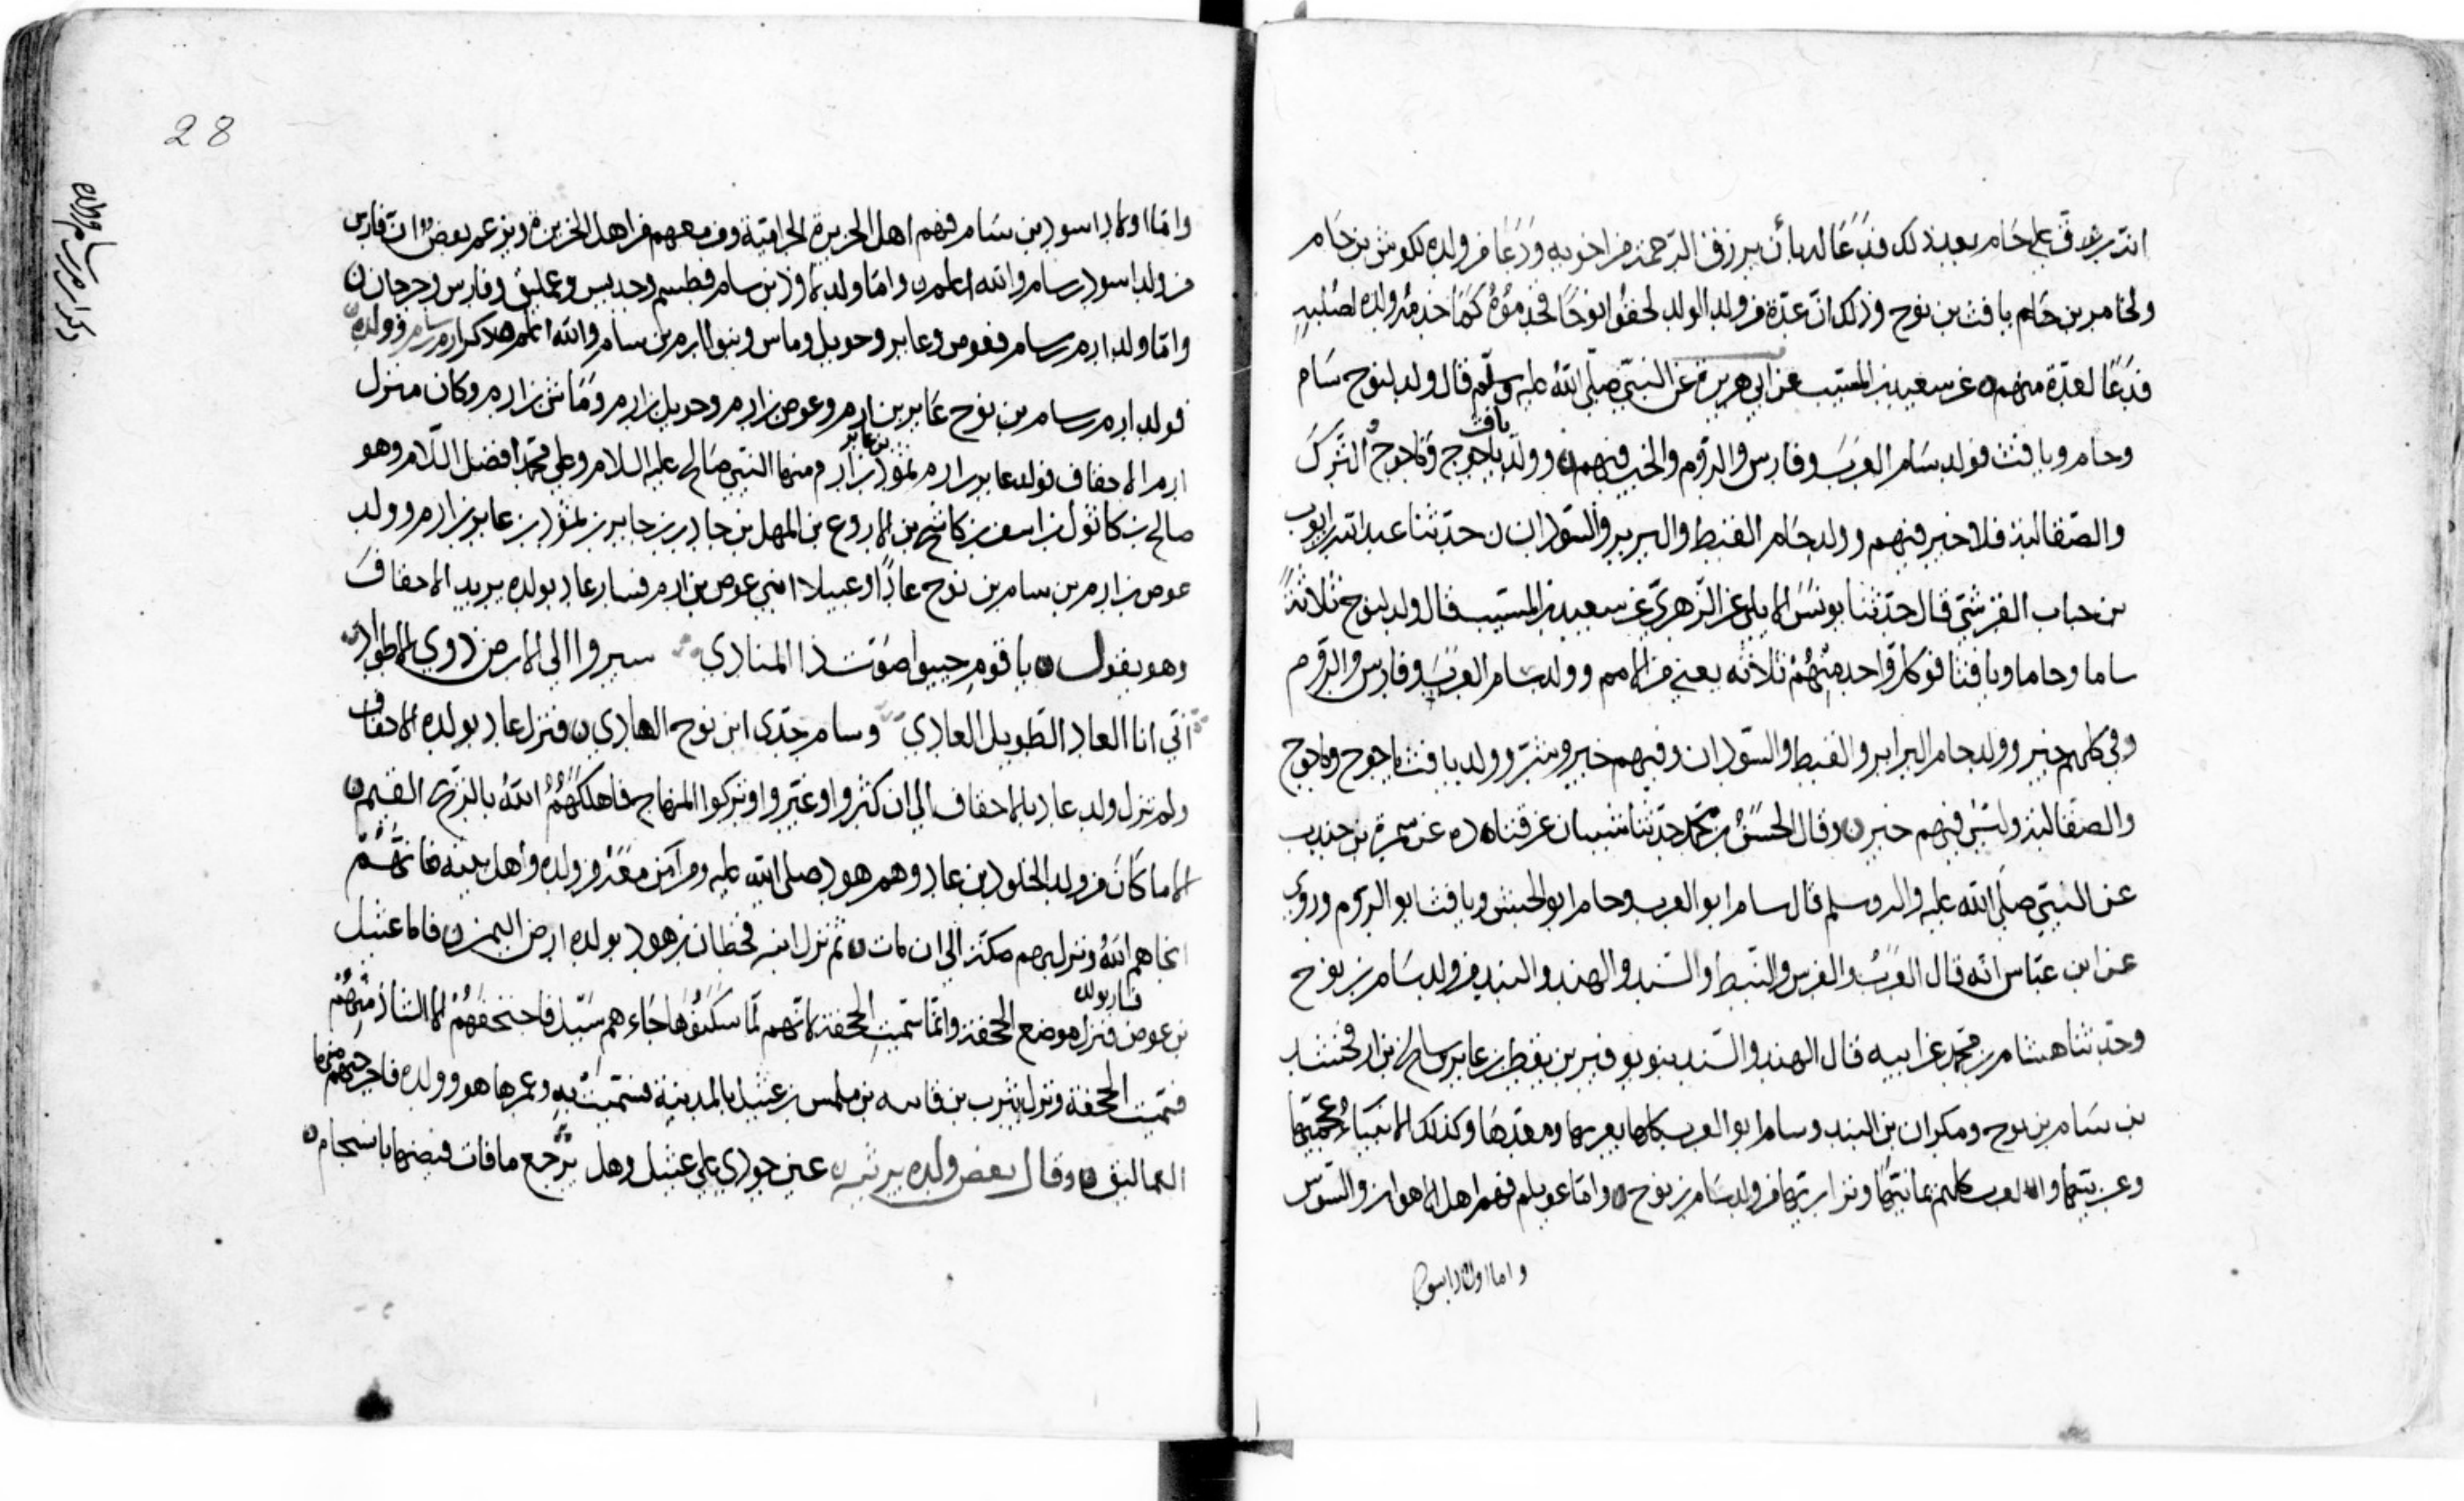 انه رق على حام بعد ذلك فدعا له بأن يرزق الرحمة من اخويه ودعا من ولده لكوش بن حام
ولحامر بن حام بن يافث بن نوح وذلك ان عدة من ولد الولد لحقوا نوحًا فخدموه كما خدمه ولده لصلبه
فدعا لعدة منهم عن سعيد بن المسيب عن ابي هريرة عن النبي صلى الله عليه وسلم قال ولد لنوح سام
وحام ويافث فولد سام العرب وفارس والروم والخير فيهم وولد يافث ياجوج وماجوج الترك
والصقالبة فلا خير فيهم وولد حام القبط والبربر والسودان حدثنا عبد الله بن ايوب
بن حباب القرشي قال حدثنا يونس الايلي عن الزهري عن سعيد بن المسيب قال ولد لنوح ثلاثة
ساما وحاما ويافثا فولد كل واحد منهم ثلاثة يعني من الامم وولد سام العرب وفارس والروم
وفي كلهم خير وولد حام البرابر والقبط والسودان وفيهم خير وشر وولد يافث ياجوج وماجوج
والصقالبة وليس فيهم خير وقال الحسن بن محمد حدثنا شيبان عن قتاده عن سمرة بن جندب
عن النبي صلى الله عليه واله وسلم قال سام ابو العرب وحام ابو الحبش ويافث ابو الروم وروي
عن ابن عباس انه قال العرب والفرس والنبط والسند والهند والبند من ولد سام بن نوح
وحدثنا هشام بن محمد عن ابيه قال الهند والسند بنو بوفير بن يقطن بن عابر بن شالخ بن ارفخشد
بن سام بن نوح ومكران بن البند وسام ابو العرب كلها يعربها ومعدها وكذلك الانبياء عجميها
وعربيتها والعرب كلهم يمانيتها ونزاريتها من ولد سام بن نوح واما عويلم فهم اهل الاهواز والسوس
واما اولاد اسود
28
ذكر ارم بن سام وولده
واما اولاد اسود بن سام فهم اهل الجزيرة الجرامقة ومن معهم من اهل الجزيرة ويزعم بعض ان فارس
من ولد اسود بن سام والله اعلم واما ولد لاوذ بن سام فطسم وجديس وعمليق وفارس وجرجان
واما ولد ارم بن سام فعوص وعابر وحويل وماس وبنو ارم بن سام والله اعلم ذكر ارم بن سام وولده
فولد ارم بن سام بن نوح عابر بن ارم وعوص بن ارم وحويل بن ارم وماش بن ارم وكان منزل
ارم الاحقاف فولد عابر بن ارم ثمود بن عابر بن ارم ومنها النبي صالح عليه السلام وعلى محمد افضل السلام وهو
صالح بن كانول بن اسف بن كاشح بن الاروع بن المهل بن جادر بن جابر بن ثمود بن عابر بن ارم وولد
عوص بن ارم بن سام بن نوح عادًا وعبيلا ابني عوص بن ارم فسار عاد بولده يريد الاحقاف
وهو يقول يا قوم جيبوا صوت ذا المنادي سيروا الى الارض ذوي الاطواد
اني انا العاد الطويل العادي وسام جدى ابن نوح الهادي فنزل عاد بولده الاحقاف
ولم تزل ولد عاد بالاحقاف الى ان كثروا وغيروا وتركوا المنهاج فاهلكهم الله بالريح العقيم
الا ما كان من ولد الخلود بن عاد وهم هود صلى الله عليه ومن آمن معه من ولده واهل بيته فانهم
انجاهم الله ونزل بهم مكة الى ان مات ثم نزل ابنه قحطان بن هود بولده ارض اليمن فاما عبيل
بن عوص فسار بولده فنزل موضع الجحفة وانما سميت الجحفة لانهم لما سكنوها جاءهم سيل فاجتحفهم الا الشاذ منهم
فسميت الجحفة ونزل يثرب بن قانيه بن مهلس بن عبيل بالمدينة فسميت به وعمرها هو وولده فاخرجهم منها
العماليق وقال بعض ولده يرثيه عين جودي على عبيل وهل يرجع ما فات فيضها بانسجام